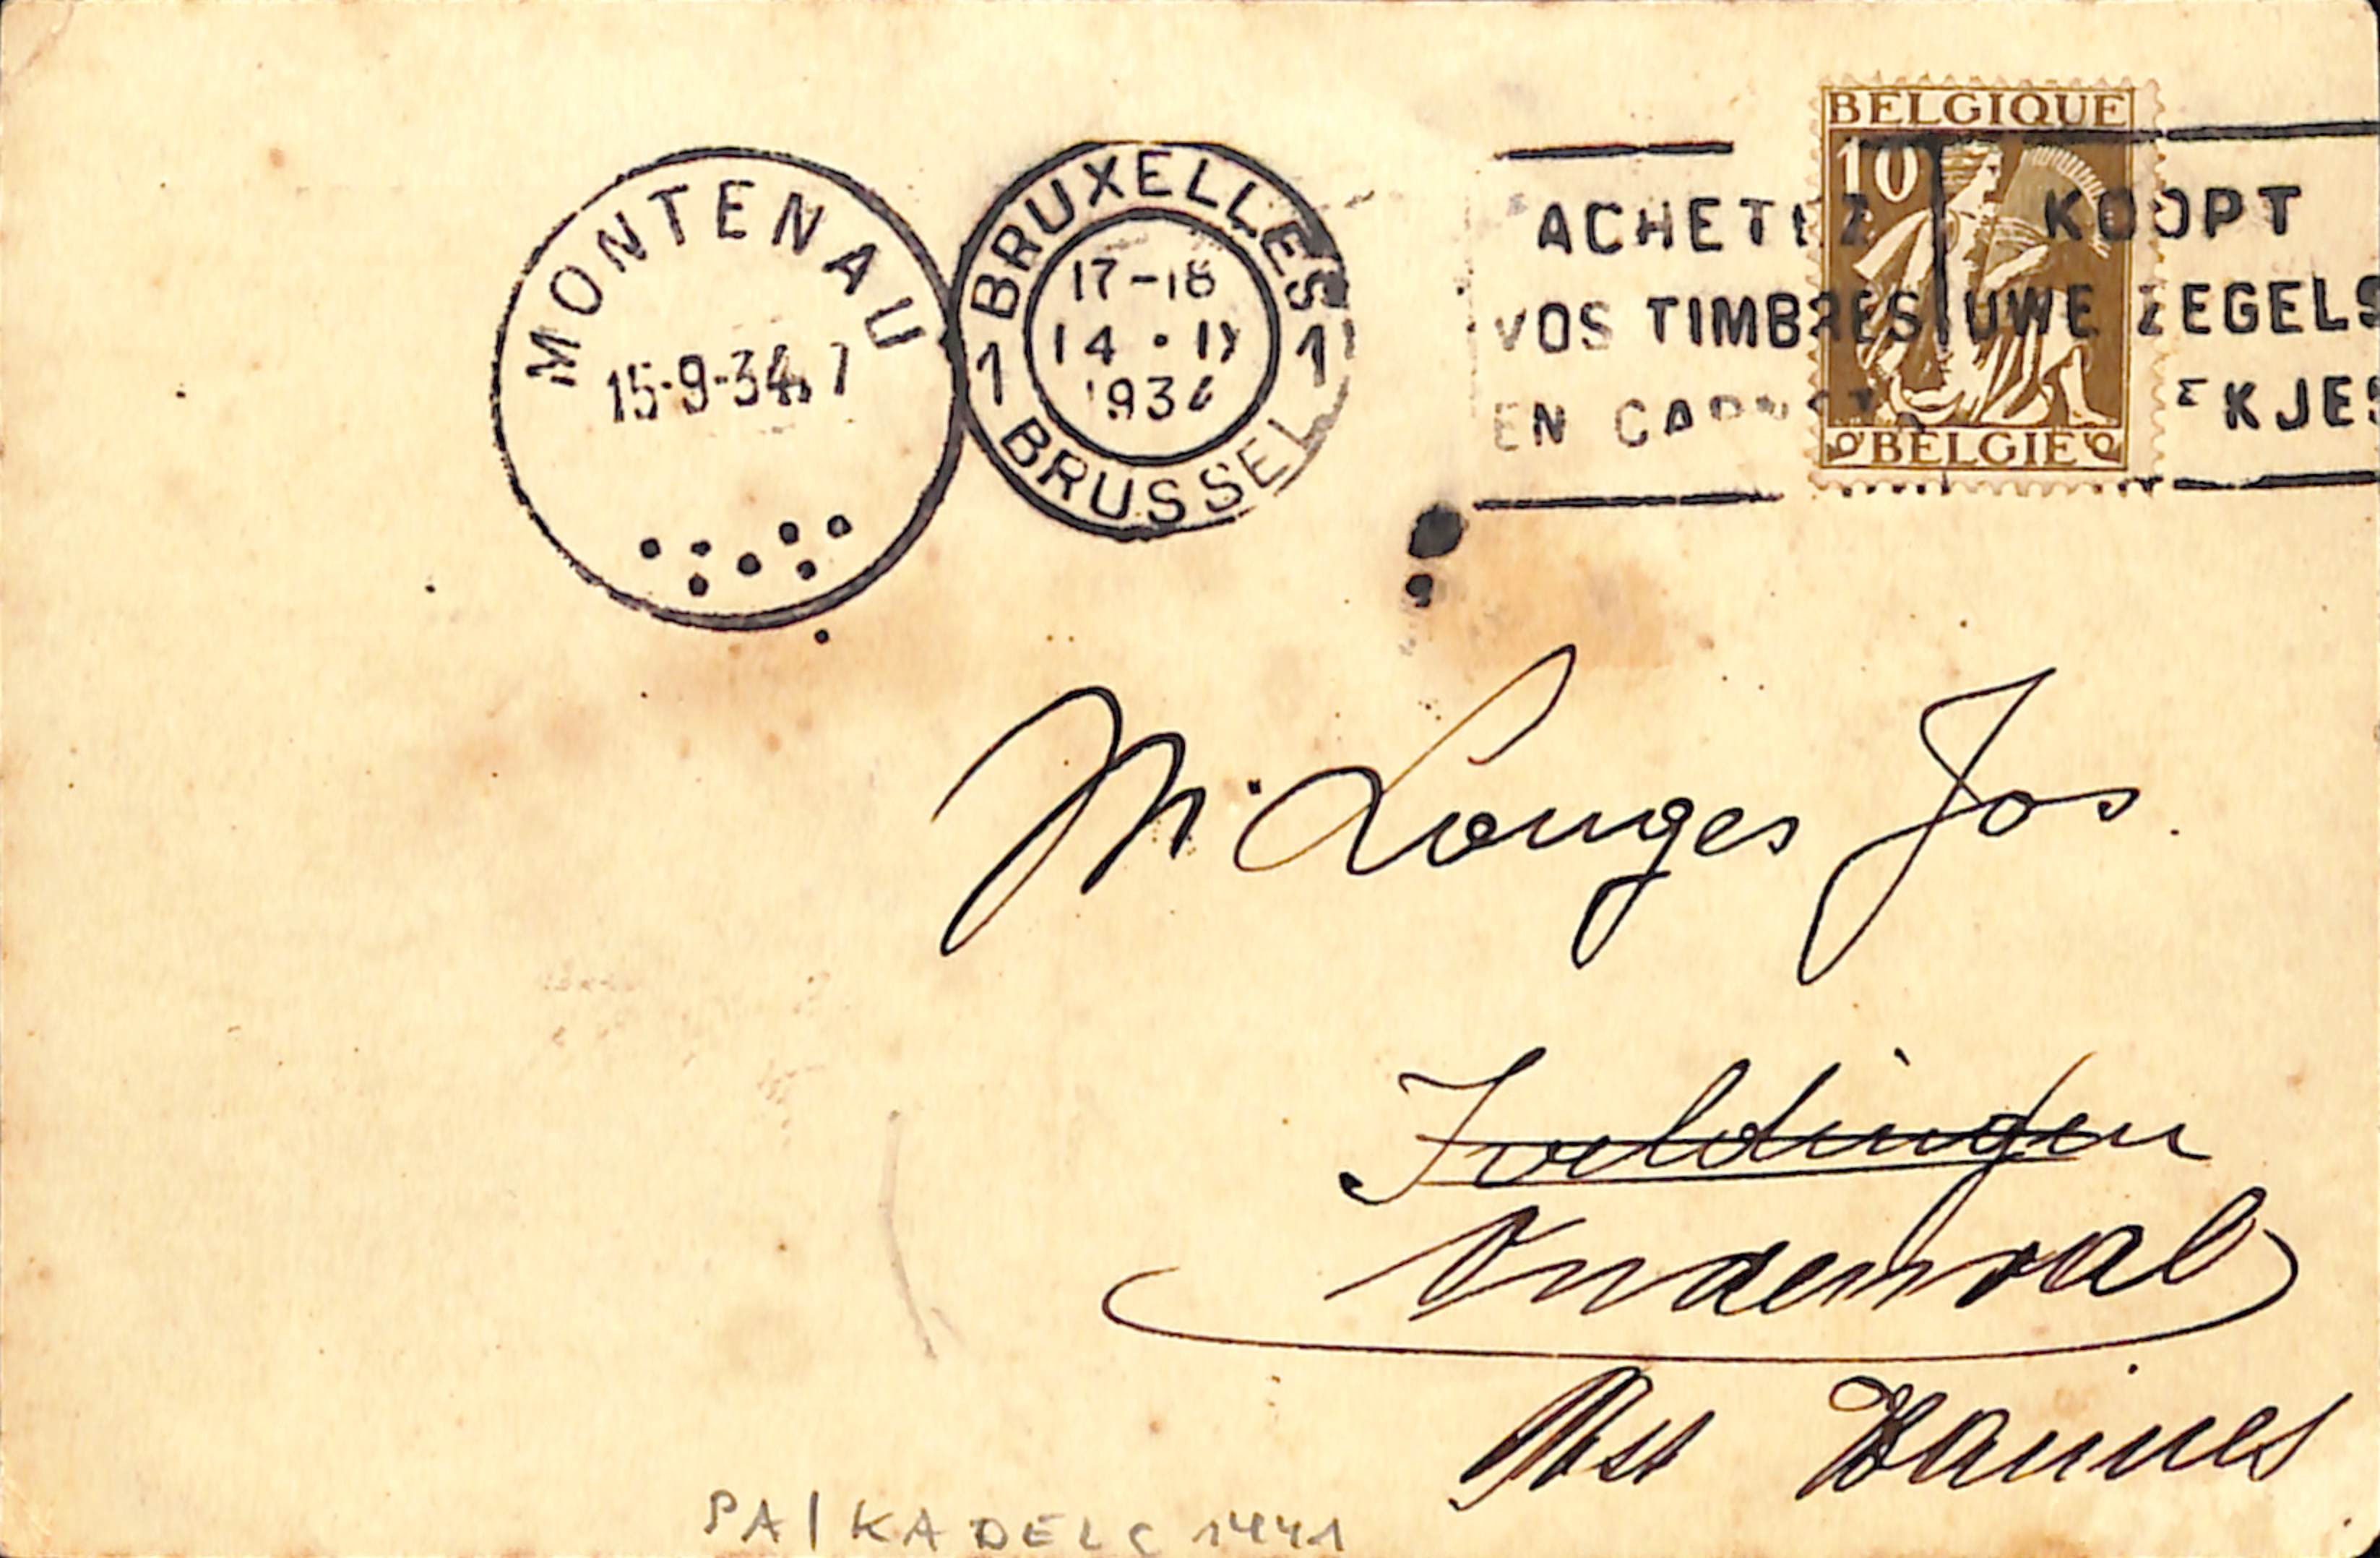 MONTENAU
15-9-34. 7
BRUXELLES
17-18
14 · IX
1934
1 1
BRUSSEL
BELGIQUE
10
BELGIE
ACHETEZ KOOPT
VOS TIMBRES UWE ZEGELS
EN CA EKJES
Mr Louges Jos.
Iveldingen
Ondenval
Post Waimes
PA / KADELC 1441